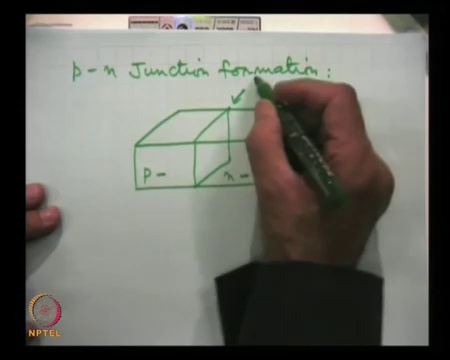 p-n Junction formation :
p- n-
NPTEL